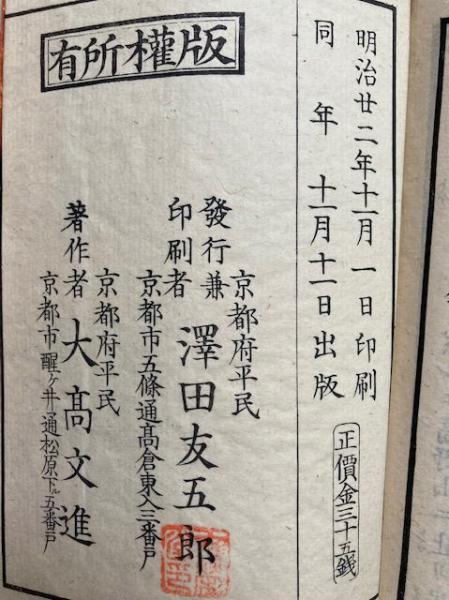 明治廿二年十一月一日印刷
同年十一月十一日出版
正價金三十五錢
版權所有
發行兼印刷者
京都府平民
澤田友五郎
京都市五條通高倉東入三番戸
著作者
京都府平民
大髙文進
京都市醒ヶ井通松原下ル五番戸